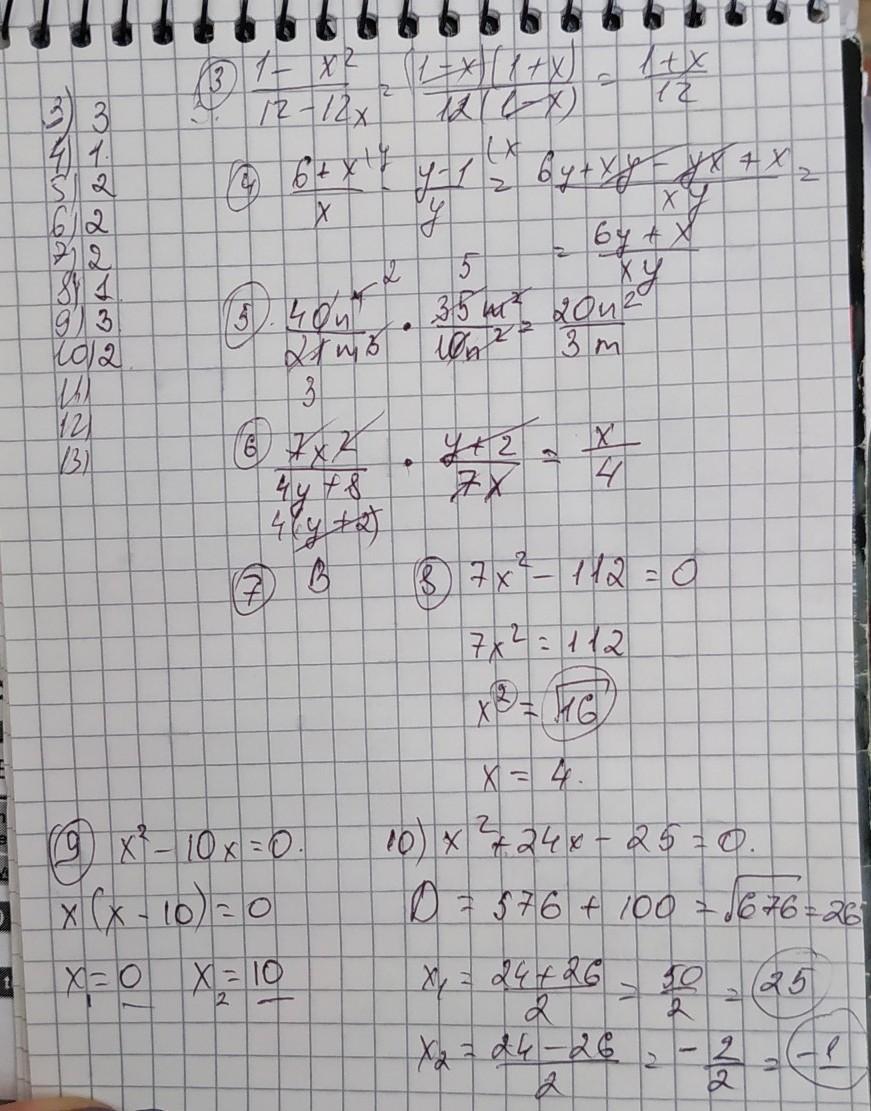 3) 3
4) 1.
5) 2
6) 2
7) 2
8) 1
9) 3
10) 2
11)
12)
13)
③ (1 - x²)/(12 - 12x) = (1-x)(1+x)/12(1-x) = (1+x)/12
④ (6+x)/x - (y-1)/y = (6y + xy - yx + x)/xy =
= (6y + x)/xy
⑤ 40n⁴/21m³ · 35m²/10n² = 20n²/3m
2 5
3
⑥ 7x²/(4y+8) · (y+2)/7x = x/4
4(y+2)
⑦ В
⑧ 7x² - 112 = 0
7x² = 112
x² = √16
x = 4.
⑨ x² - 10x = 0.
x(x - 10) = 0
x₁ = 0 x₂ = 10
10) x² + 24x - 25 = 0.
D = 576 + 100 = √676 = 26
x₁ = (24+26)/2 = 50/2 = 25
x₂ = (24-26)/2 = -2/2 = -1